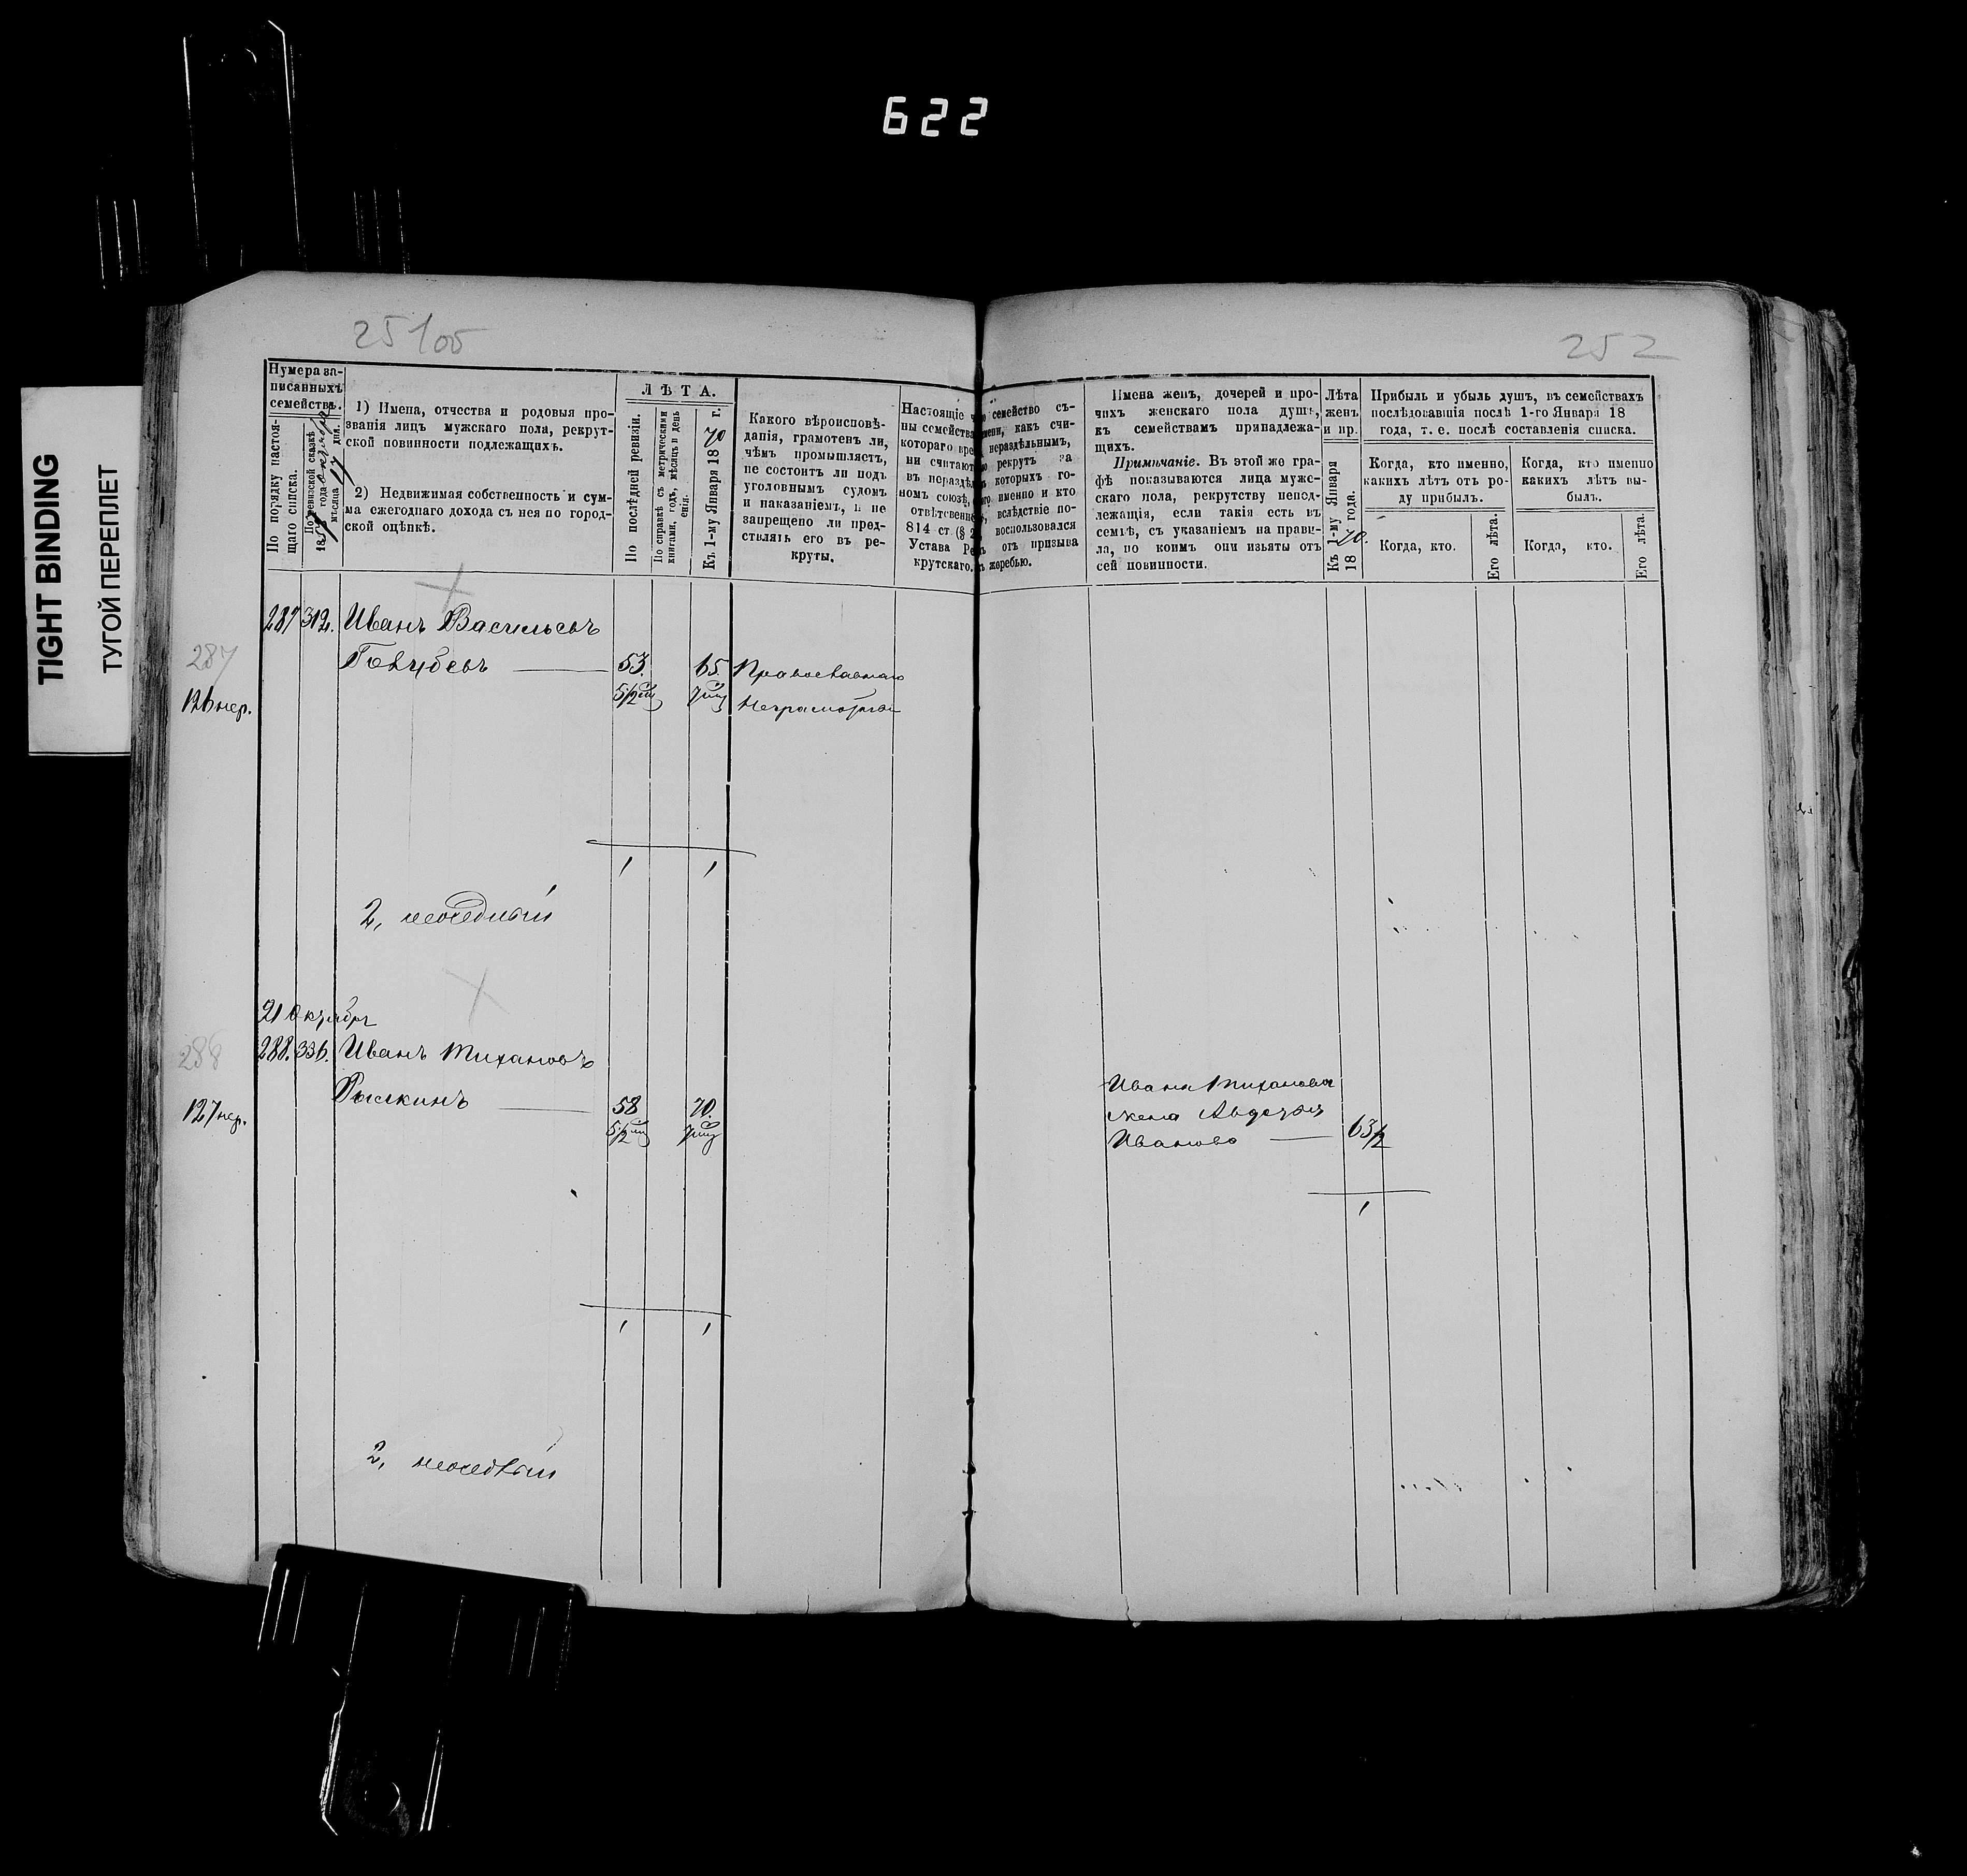 622
TIGHT BINDING
ТУГОЙ ПЕРЕПЛЕТ
251об
252
Нумера за-
писанныхъ
семействъ.
По порядку настоя-
щаго списка.
По ревизской сказкѣ
1857 года октября
мѣсяца 17 дня.
1) Имена, отчества и родовыя про-
званія лицъ мужскаго пола, рекрут-
ской повинности подлежащихъ.
2) Недвижимая собственность и сум-
ма ежегоднаго дохода съ нея по город-
ской оцѣнкѣ.
ЛѢТА.
По послѣдней ревизіи.
По справкѣ съ метрическими
книгами, годъ, мѣсяцъ и день
Къ 1-му Января 1870 г.
Какого вѣроисповѣ-
данія, грамотенъ ли,
чѣмъ промышляетъ,
не состоитъ ли подъ
уголовнымъ судомъ
и наказаніемъ, и не
запрещено ли пред-
ставлять его въ ре-
круты.
Настоящіе
ны семейства
котораго вре
ни считают
въ нераздѣл
номъ союзѣ,
отвѣтственн
814 ст (§ 2
Устава Ре
крутскаго.
семейство съ-
мени, какъ счи-
нераздѣльнымъ,
рекрутъ за
которыхъ го-
именно и кто
вслѣдствіе по-
воспользовался
отъ призыва
жеребью.
Имена женъ, дочерей и про-
чихъ женскаго пола душъ,
къ семействамъ принадлежа-
щихъ.
Примѣчаніе. Въ этой же гра-
фѣ показываются лица муже-
скаго пола, рекрутству непод-
лежащія, если такія есть въ
семьѣ, съ указаніемъ на прави-
ла, по коимъ они изъяты отъ
сей повинности.
Лѣта
женъ
и пр.
Къ 1-му Января
1870 года.
Прибыль и убыль душъ, въ семействахъ
послѣдовавшія послѣ 1-го Января 18
года, т. е. послѣ составленія списка.
Когда, кто именно,
какихъ лѣтъ отъ ро-
ду прибылъ.
Когда, кто именно
какихъ лѣтъ вы-
былъ.
Когда, кто.
Его лѣта.
Когда, кто.
Его лѣта.
287 312. Иванъ Васильевъ
287
53. 65 Православнаго
126 нер.
5 1/2 мц 7 мц Неграмотный
1 1
2, неоседлый
21 Октября
288
288. 336. Иванъ Тихановъ
Рыскинъ 58 70.
127 нер.
5 1/2 мц 7 мц
Ивана Тиханова
жена Авдотья
Иванова 63 1/2
1
1 1
2, неоседлый